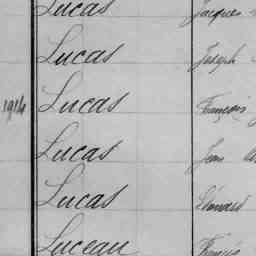 Lucas Jacques
Lucas Joseph
1914 Lucas François
Lucas Jean
Lucas Edouard
Luceau Francis